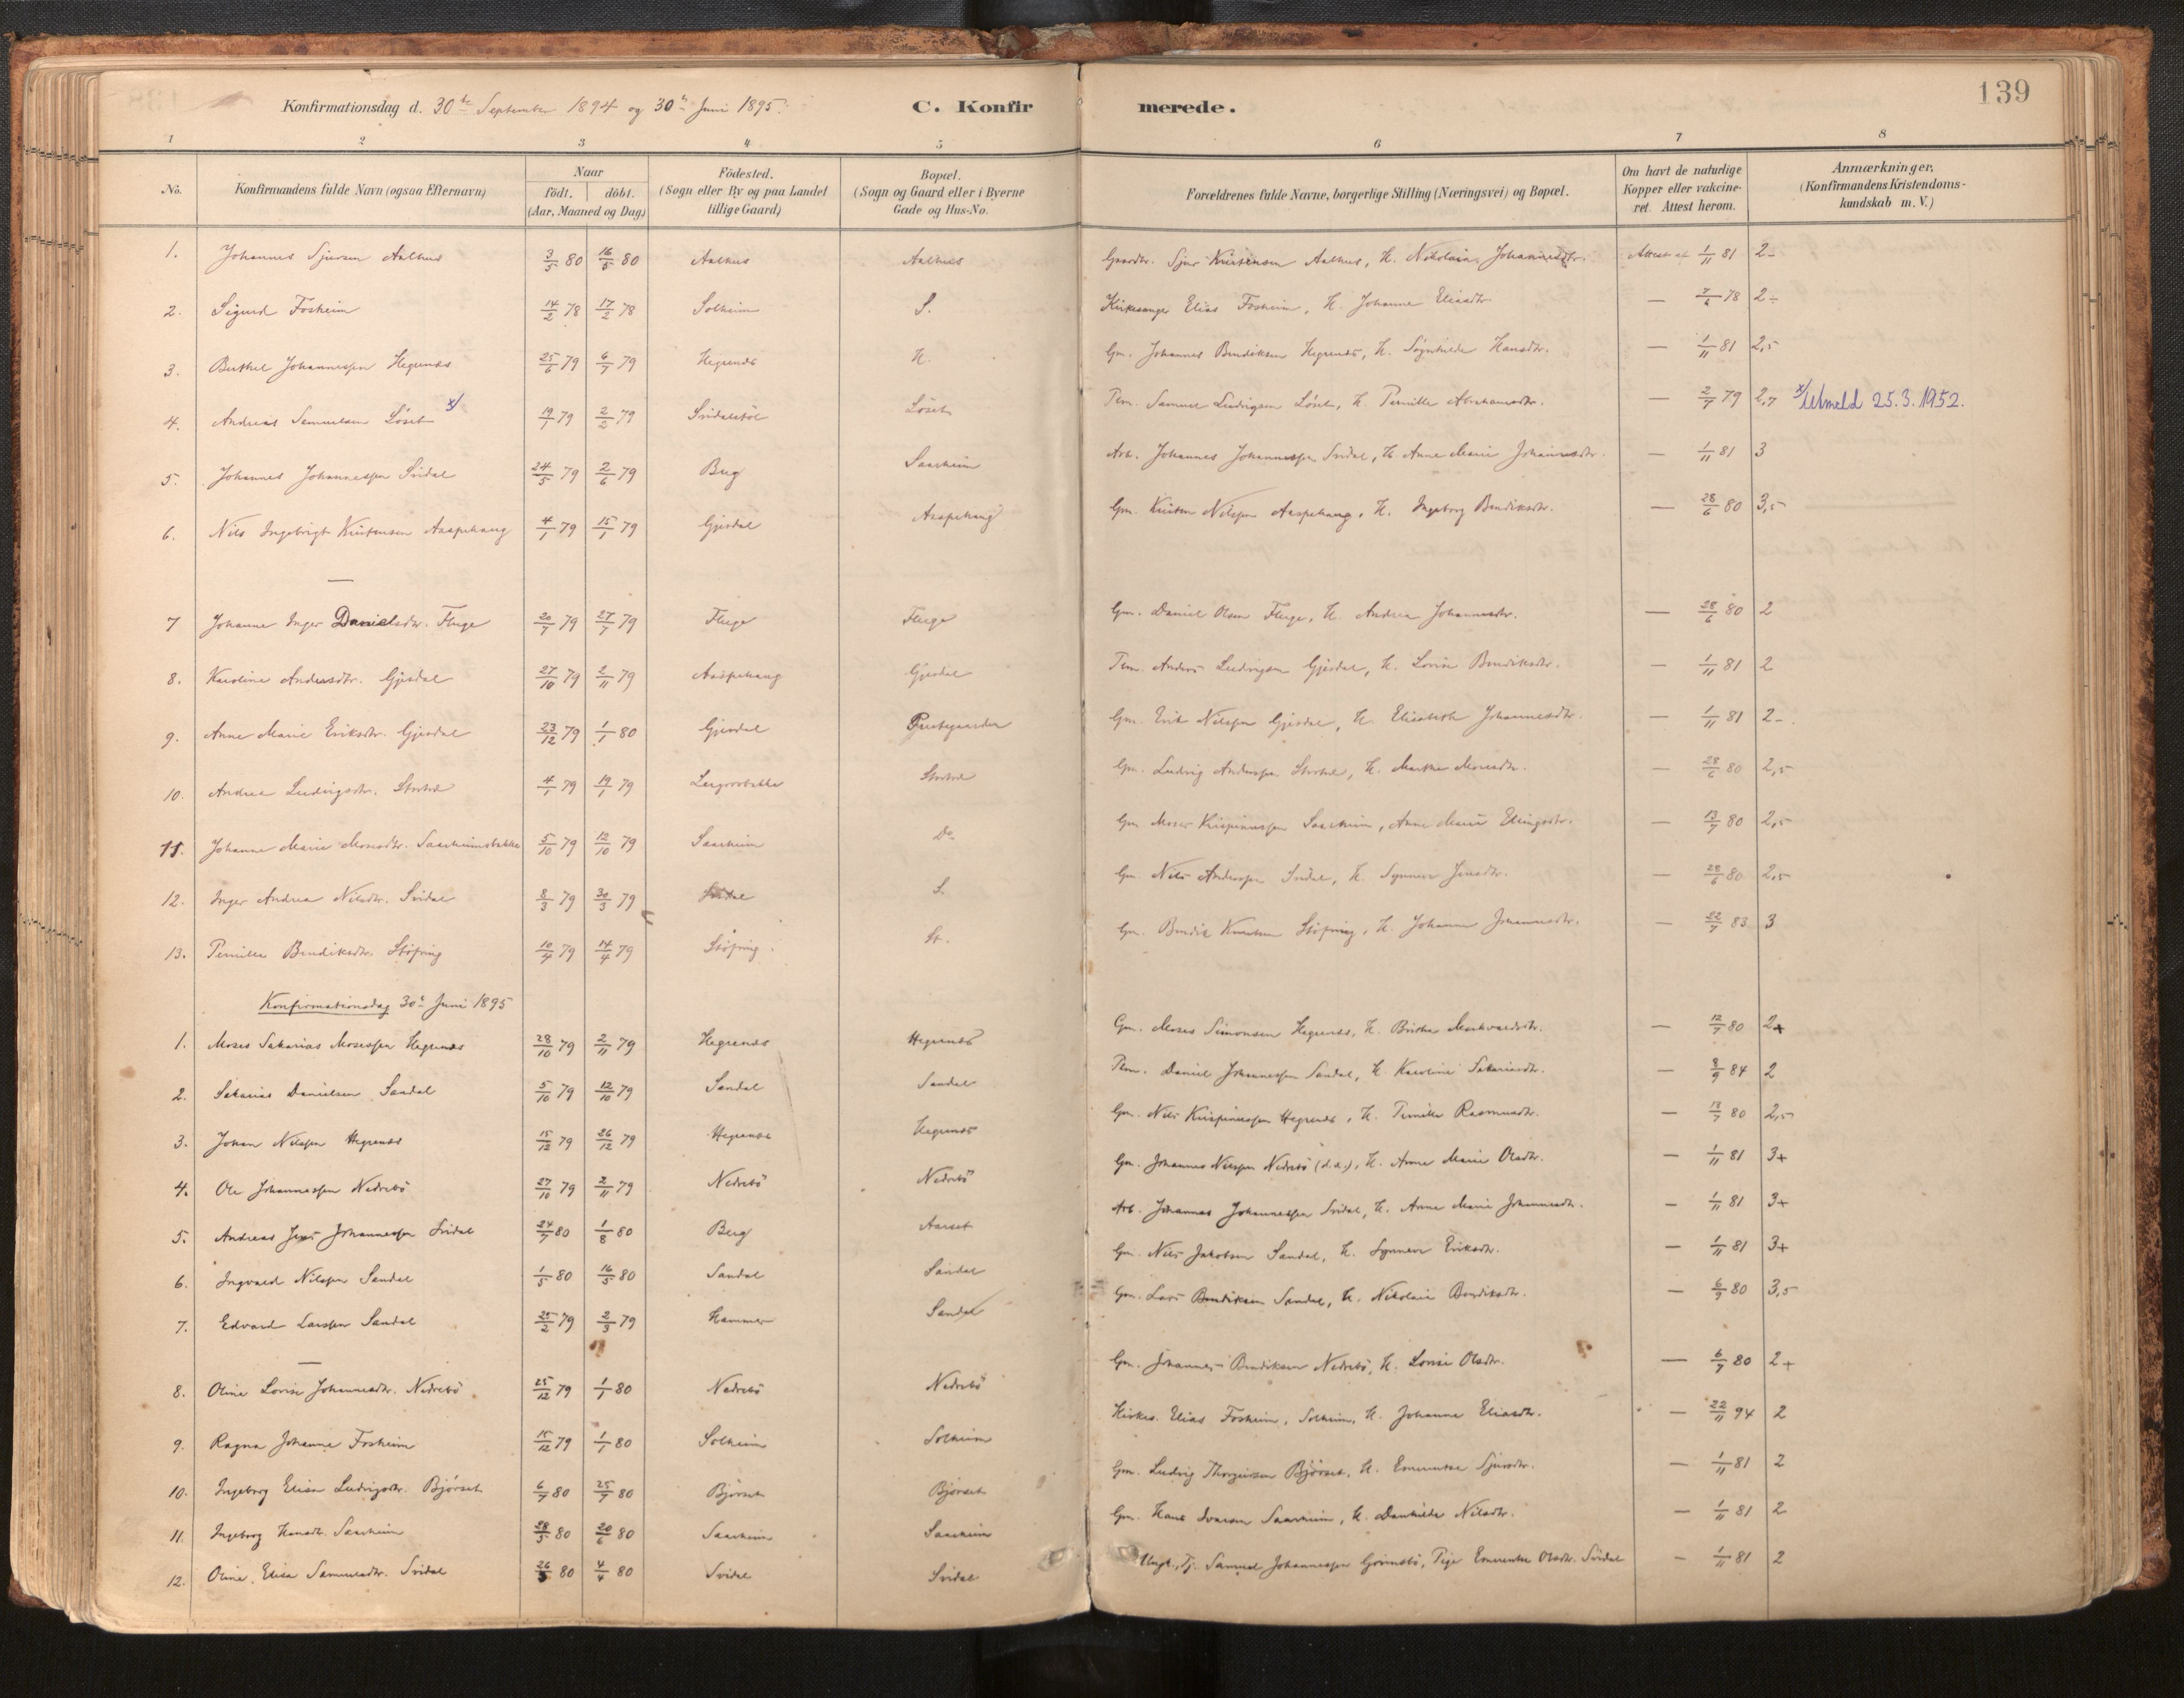 139
Konfirmationsdag d. 30te September 1894 og 30te Juni 1895. C. Konfirmerede.
1 2 3 4 5 6 7 8
No. Konfirmandens fulde Navn (ogsaa Efternavn) Naar födt. döbt. (Aar, Maaned og Dag) Födested. (Sogn eller By og paa Landet tillige Gaard) Bopæl. (Sogn og Gaard eller i Byerne Gade og Hus-No. Forældrenes fulde Navne, borgerlige Stilling (Næringsvei) og Bopæl. Om havt de naturlige Kopper eller vakcineret. Attest herom. Anmærkninger. (Konfirmandens Kristendomskundskab m. V.)
1. Johannes Sjursen Aalhus 3/5 80 16/5 80 Aalhus Aalhus Gaardbr. Sjur Kristensen Aalhus, H. Nikolaia Johannesdtr. Attest af 1/11 81 2-
2. Sigurd Fosheim 14/2 78 17/2 78 Solheim S. Kirkesanger Elias Fosheim, H. Johanne Eliasdtr. — 78 2÷
3. Berthel Johannessen Hegrenæs 25/6 79 6/7 79 Hegrenæs H. Gm. Johannes Bendiksen Hegrenæs, H. Hansdtr. — 1/11 81 2,5
4. Andreas Samuelsen Löset x) 19/1 79 2/2 79 Svidalstöl Löset Pem. Samuel Ludvigsen Löset, H. Pernille Abrahamsdtr. — 2/7 79 2,7 x) Utmeld 25.3.1952.
5. Johannes Johannessen Svidal 24/5 79 2/6 79 Berg Saarheim Arb. Johannes Johannessen Svidal, H. Anne Marie Johannesdtr. — 1/11 81 3
6. Nils Ingebrigt Kristensen Aaspehaug 4/1 79 15/1 79 Gjesdal Aaspehaug Gm. Kristen Nilssen Aaspehaug, H. Ingeborg Bendiksdtr. — 28/6 80 3,5
—
7 Johanne Inger Danielsdtr. Fluge 20/7 79 27/7 79 Fluge Fluge Gm. Daniel Olsen Fluge, H. Andrea Johannesdtr. — 28/6 80 2
8. Karoline Andersdtr. Gjesdal 27/10 79 2/11 79 Aaspehaug Gjesdal Pem. Anders Ludvigsen Gjesdal, H. Lovise Bendiksdtr. — 1/11 81 2
9. Anne Marie Eriksdtr. Gjesdal 23/12 79 1/1 80 Gjesdal Præstegaarden Gm. Erik Nilssen Gjesdal, H. Elisabeth Johannesdtr. — 1/11 81 2-.
10. Andrea Ludvigsdtr. 4/1 79 19/1 79 Gm. Ludvig Anderssen H. Marthe Mosesdtr. — 28/6 80 2,5
11. Johanne Marie Mosesdtr. Saarheimsbakke 5/10 79 12/10 79 Saarheim Do. Gm. Moses Krispinussen Saarheim, Anne Marie Ellingsdtr. — 13/7 80 2,5
12. Inger Andrea Nilsdtr. Svidal 8/3 79 30/3 79 Svidal S. Gm. Nils Anderssen Svidal, H. Synneve Jensdtr. — 28/6 80 2,5
13. Pernille Bendiksdtr. Stöfring 10/4 79 14/4 79 Stöfring. St. Gm. Bendik Knutsen Stöfring, H. Johanne Johannesdtr. — 22/7 83 3
Konfirmationsdag 30te Juni 1895
1. Moses Sakarias Mosessen Hegrenæs 28/10 79 2/11 79 Hegrenæs Hegrenæs Gm. Moses Simonsen Hegrenæs, H. Brithe Markvardsdtr. — 12/7 80 2+
2. Sakarias Danielsen Sandal 5/10 79 12/10 79 Sandal Sandal Pem. Daniel Johannessen Sandal, H. Karoline Sakariasdtr. — 8/9 84 2
3. Johan Nilssen Hegrenæs 15/12 79 26/12 79 Hegrenæs Hegrenæs Gm. Nils Krispinussen Hegrenæs, H. Pernille Rasmusdtr. — 13/7 80 2,5
4. Ole Johannessen Nedrebö 27/10 79 2/11 79 Nedrebö Nedrebö Gm. Johannes Nilssen Nedrebö (d.æ.), H. Anne Marie Olsdtr. — 1/11 81 3+
5. Andreas Jens Johannessen Svidal 24/7 80 1/8 80 Berg Aarset Arb. Johannes Johannessen Svidal, H. Anne Marie Johannesdtr. — 1/11 81 3+
6. Ingvald Nilssen Sandal 1/5 80 16/5 80 Sandal Sandal Gm. Nils Jakobsen Sandal, H. Synneve Eriksdtr. — 1/11 81 3+
7. Edvard Larssen Sandal 25/2 79 2/3 79 Hammer Sandal Gm. Lars Bendiksen Sandal, H. Nikolaie Bendiksdtr. — 6/9 80 3,5
—
8. Oline Lovise Johannesdtr. Nedrebö 25/12 79 1/1 80 Nedrebö Nedrebö Gm. Johannes Bendiksen Nedrebö, H. Lovise Olsdtr. — 6/7 80 2+
9. Ragna Johanne Fosheim 15/12 79 1/1 80 Solheim Solheim Kirkes. Elias Fosheim, Solheim, H. Johanne Eliasdtr. — 22/11 94 2
10. Ingeborg Elisa Ludvigsdtr. Bjørset 6/7 80 25/7 80 Bjørset Bjørset Gm. Ludvig Thorgeirsen Bjørset, H. Emerentse Sjursdtr. — 1/11 81 2
11. Ingeborg Hansdtr. Saarheim 28/5 80 20/6 80 Saarheim Saarheim Gm. Hans Ivarsen Saarheim, H. Danhilda Nilsdtr. — 1/11 81 2
12. Oline Elisa Samuelsdtr. Svidal 26/3 80 4/4 80 Svidal Svidal Ungk., Tj. Samuel Johannessen Grimsbö, Pige Emerentse Olsdtr. Svidal — 1/11 81 2